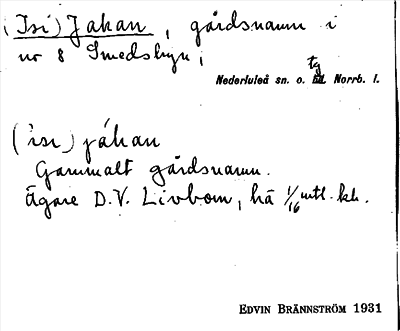 (Isi) Jakan, gårdsnamn i
nr 8 Smedsbyn,
Nederluleå sn. o. tg Norrb. l.
(isi) jákan
Gammalt gårdsnamn.
Ägare D.V. Livbom, hā 1/16 mtl. kr.
EDVIN BRÄNNSTRÖM 1931